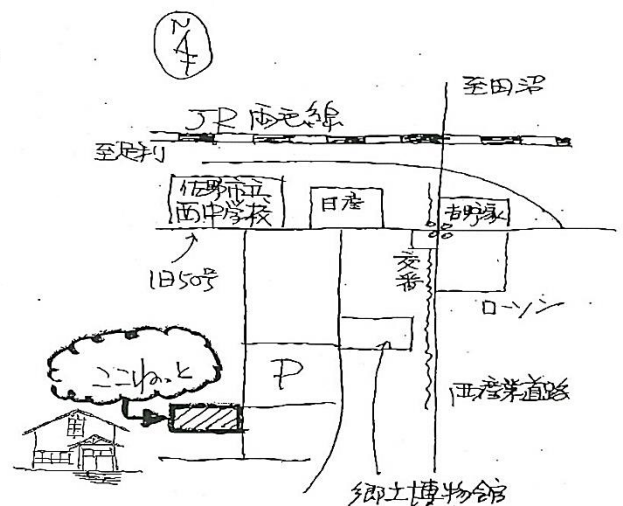 N
至田沼
JR両毛線
至足利
佐野市立
西中学校
日産
吉野家
旧50号
交番
ローソン
ここねっと
P
西産業道路
郷土博物館